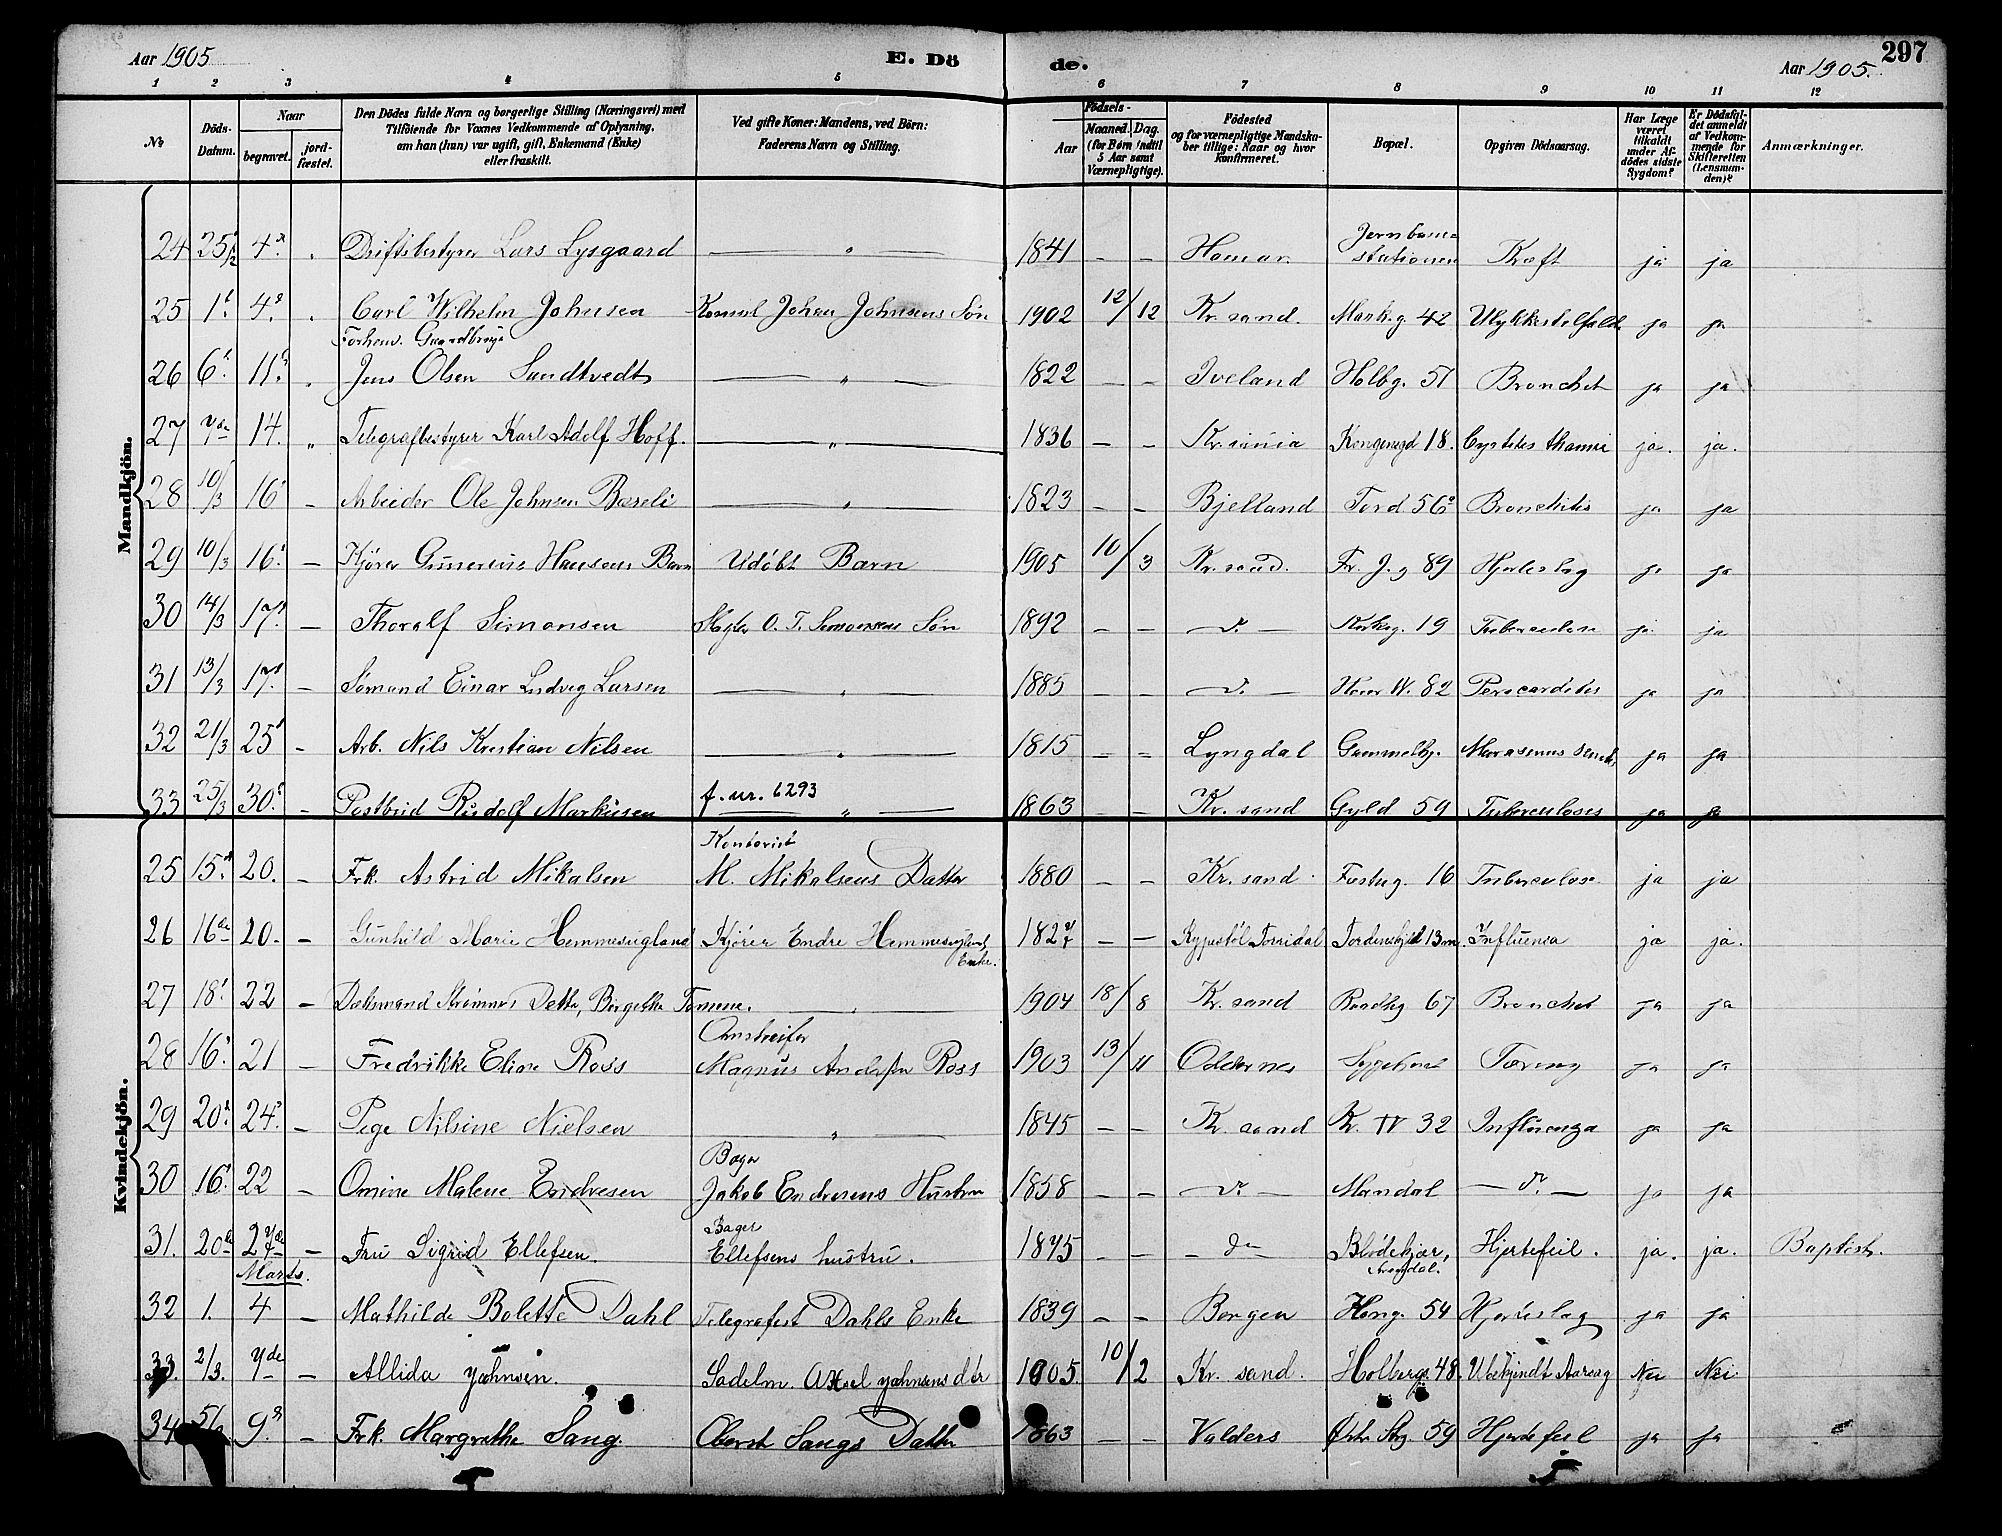 Aar 1905
E. Dö
de.
Aar 1905.
297
1 2 3 4 5 6 7 8 9 10 11 12
№
Döds-
Datum.
Naar
begravet.
jord-
fæstet.
Den Dödes fulde Navn og borgerlige Stilling (Næringsvei) med
Tilföiende for Voxnes Vedkommende af Oplysning,
om han (hun) var ugift, gift, Enkemand (Enke)
eller fraskilt.
Ved gifte Koner: Mandens, ved Börn:
Faderens Navn og Stilling.
Födsels-
Aar
Maaned. Dag.
(for Börn indtil
5 Aar samt
Værnepligtige).
Födested
og for værnepligtige Mandska-
ber tillige: Naar og hvor
konfirmeret.
Bopæl.
Opgiven Dödsaarsag.
Har Læge
været
tilkaldt
under Af-
dödes sidste
Sygdom?
Er Dödsfal-
det anmeldt
af Vedkom-
mende for
Skifteretten
(Lensman-
den)?
Anmærkninger.
Mandkjön.
24 25/2 4 Driftsbestyrer Lars Lysgaard — " — 1841 – – Hamar Jernbane
stationen Kræft ja ja
25 1 4 Carl Wilhelm Johnsen Konsul Johan Johnsens Søn 1902 12/12 Kr. sand. Markg 42 Ulykkestilfælde ja ja
Forhenv. Gaardbruge
26 6 11 Jens Olsen Sandtvedt — " — 1822 – – Iveland Holbg. 51 Bronchit ja ja
27 7de 14. " Telegrafbestyrer Karl Adolf Hoff. — " — 1836 – – Kr.ania Kongensgd 18. ja. ja.
28 10/3 16 – Arbeider Ole Johnsen — " — 1823 – – Bjelland Tord 56 Bronchitis ja ja
29 10/3 16 – Kjører Gunerius Hansens Barn Udøbt Barn 1905 10/3 Kr. sand. Fr. J. g 89 Hjerteslag ja ja
30 14/3 17 – Thoralf Simonsen O. T. Simonsens Søn 1892 – – – d. – Kirkeg. 19 Tuberculose ja ja
31 13/3 17 – Sømand Einar Ludvig Larsen — " — 1885 – – – d. – W. 82 Pericarditis ja ja
32 21/3 25 – Arb. Nils Kristian Nilsen — " — 1815 – – Lyngdal Gammelby. Marasmus ja ja
33 25/3 30 – Postbud Rudolf Markusen f. nr. 6293 " — 1863 – – Kr. sand Gyld 59 Tuberculosis ja ja
Kvindekjön.
25 15 20. – Frk. Astrid Mikalsen Kontorist
M. Mikalsens Datter 1880 – – Kr. sand Festng. 16 Tuberculose ja ja
26 16de 20. – Gunhild Marie Hemmesugland Kjører Endre Hemmesugland
Enke. 1827 – – Torridal Tordenskjld 13 Influenza ja ja.
27 18 22 – Datter, Bergitte Tomine. — " — 1904 18/8 Kr. sand 67 Bronchit ja ja
28 16 21 – Fredrikke Eline Ross Omstreifer
Magnus Andersen Ross 1903 13/11 Oddernes Tæring ja ja
29 20 24 – Pige Nilsine Nielsen — " — 1845 – – Kr. sand K. W 32 Influenza ja ja
30 16 22 – Omine Malene Endresen Bager
Jakob Endresens Hustru 1858 – – – d. – Mandal – d. – ja ja
31. 20de 27de – Fru Sigrid Ellefsen. Bager
Ellefsens hustru. 1875 – – – d – Blødekjær,
Arendal. Hjertefeil. ja. ja. Baptist.
Marts.
32 1. 4 – Mathilde Bolette Dahl Telegrafist Dahls Enke 1839 – – Bergen Kong. 54 Hjerteslag ja ja
33. 2/3. 7de – Allida Jahnsen. Sadelm. Axsel Jahnsens dtr 1905. 10/2 Kr. sand. Holbergs 48. Ubekjendt Aarsag Nei Nei
34 5/3 9 – Frk. Margrethe Sang. Oberst Sangs Datter 1863 – – Valders Østr Stg. 59 Hjertefeil ja ja